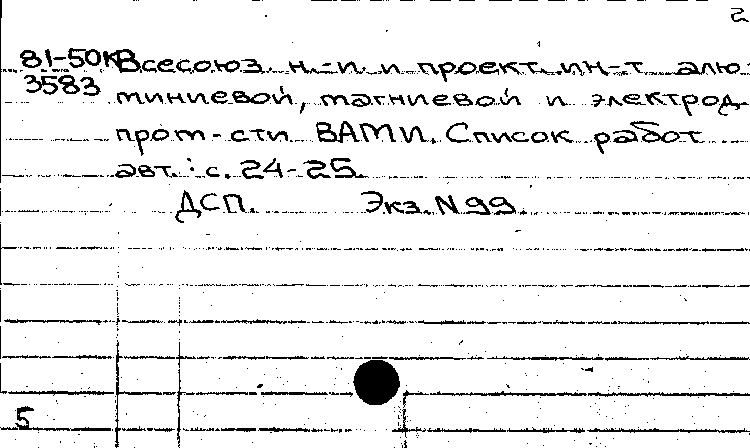 2
81-50КВ Всесоюз. н.-и. и проект. ин-т алю-
3583 миниевой, магниевой и электрод.
пром-сти ВАМИ. Список работ
авт.: с. 24-25.
ДСП. Экз. N 99.
5